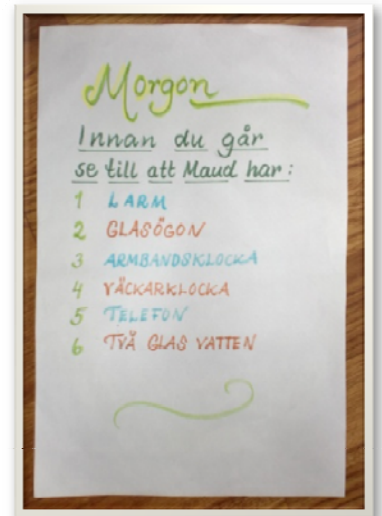 Morgon
Innan du går
se till att Maud har:
1 LARM
2 GLASÖGON
3 ARMBANDSKLOCKA
4 VÄCKARKLOCKA
5 TELEFON
6 TVÅ GLAS VATTEN